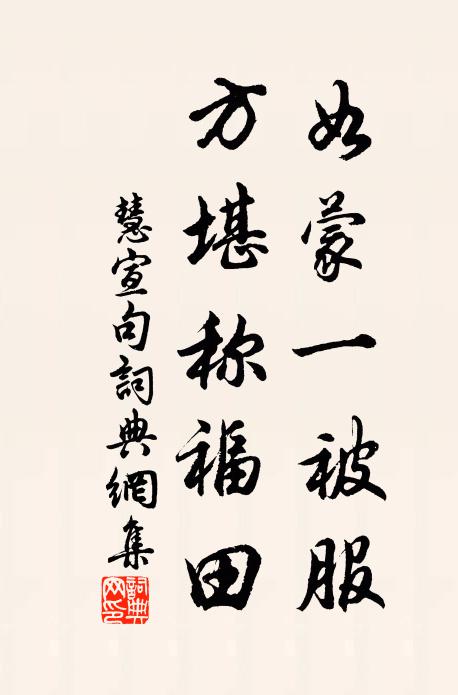 如蒙一被服
方堪称福田
慧宣句詞典網集
詞典网印